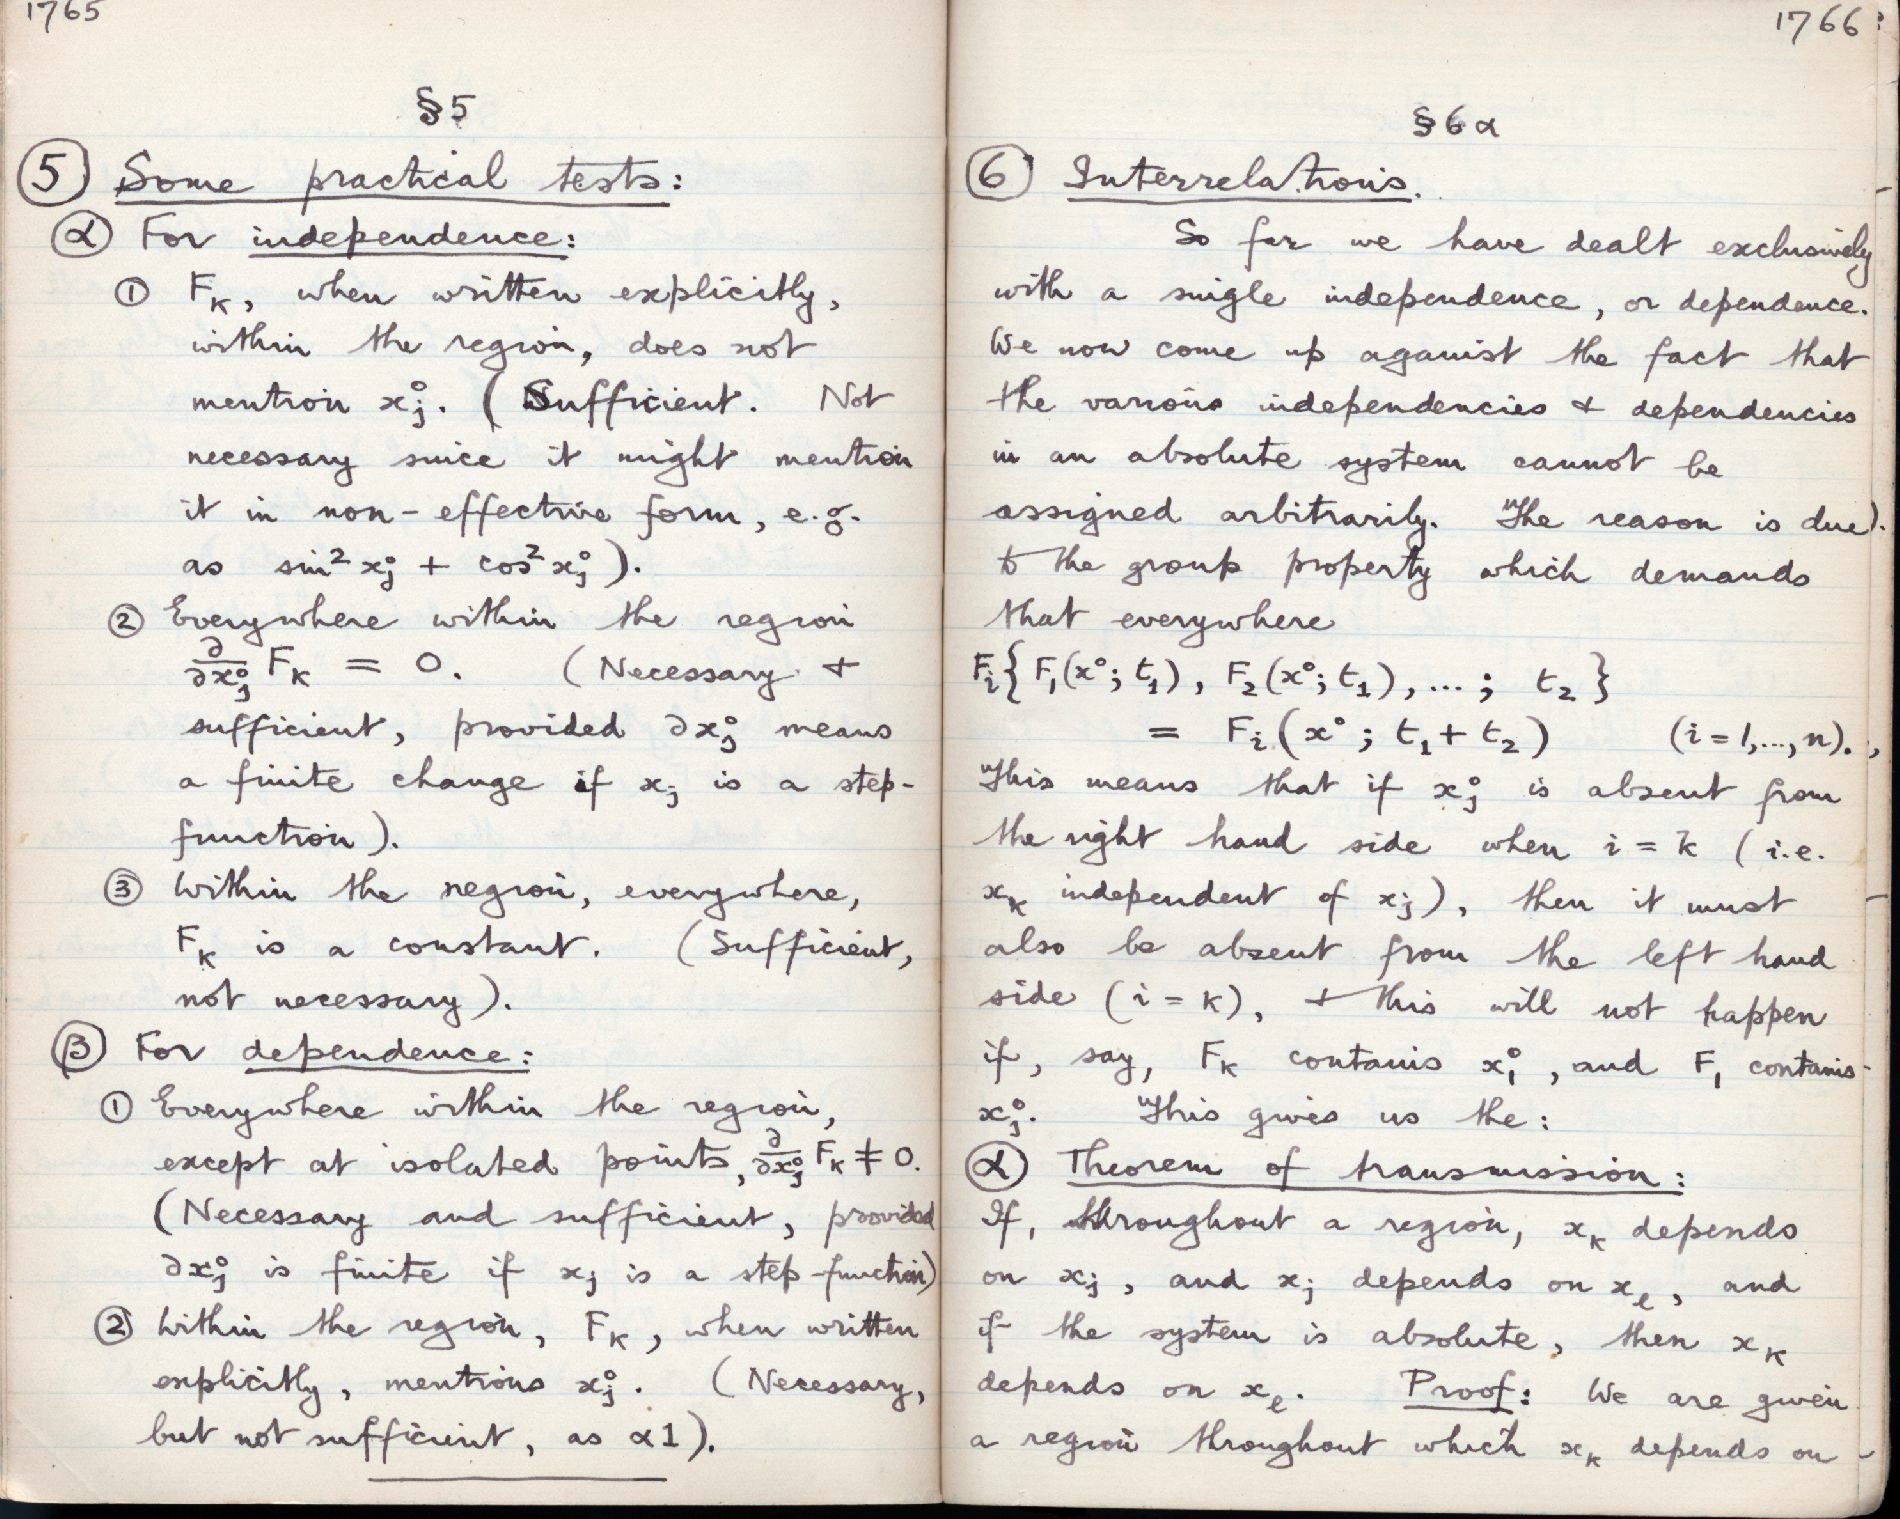 1765
§5
⑤ Some practical tests:
ⓐ For independence:
① F_K, when written explicitly,
within the region, does not
mention x_j°. (Sufficient. Not
necessary since it might mention
it in non-effective form, e.g.
as sin² x_j° + cos² x_j°).
② Everywhere within the region
∂/∂x_j° F_K = 0. (Necessary +
sufficient, provided ∂x_j° means
a finite change if x_j is a step-
function).
③ Within the region, everywhere,
F_K is a constant. (Sufficient,
not necessary).
Ⓑ For dependence:
① Everywhere within the region,
except at isolated points, ∂/∂x_j° F_K ≠ 0.
(Necessary and sufficient, provided
∂x_j° is finite if x_j is a step-function)
② Within the region, F_K, when written
explicitly, mentions x_j°. (Necessary,
but not sufficient, as α1).
1766
§6α
⑥ Interrelations.
So far we have dealt exclusively
with a single independence, or dependence.
We now come up against the fact that
the various independencies + dependencies
in an absolute system cannot be
assigned arbitrarily. The reason is due
to the group property which demands
that everywhere
F_i{F_1(x°; t_1), F_2(x°; t_1), ...; t_2}
= F_i(x°; t_1 + t_2) (i = 1, ..., n).
This means that if x_j° is absent from
the right hand side when i = k (i.e.
x_K independent of x_j), then it must
also be absent from the left hand
side (i = K), + this will not happen
if, say, F_K contains x_1°, and F_1 contains
x_j°. This gives us the:
ⓐ Theorem of transmission:
If, throughout a region, x_K depends
on x_j, and x_j depends on x_l, and
if the system is absolute, then x_K
depends on x_l. Proof: We are given
a region throughout which x_K depends on